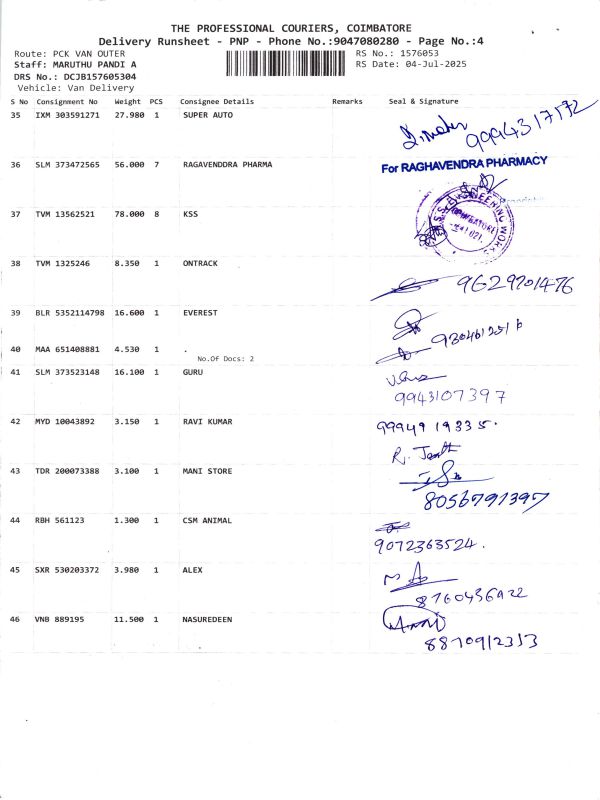 THE PROFESSIONAL COURIERS, COIMBATORE
Delivery Runsheet - PNP - Phone No.:9047080280 - Page No.:4
Route: PCK VAN OUTER RS No.: 1576053
Staff: MARUTHU PANDI A RS Date: 04-Jul-2025
DRS No.: DCJB157605304
Vehicle: Van Delivery
S No Consignment No Weight PCS Consignee Details Remarks Seal & Signature
35 IXM 303591271 27.980 1 SUPER AUTO
9994317172
36 SLM 373472565 56.000 7 RAGAVENDRA PHARMA For RAGHAVENDRA PHARMACY
37 TVM 13562521 78.000 8 KSS
38 TVM 1325246 8.350 1 ONTRACK
9629201476
39 BLR 5352114798 16.600 1 EVEREST
40 MAA 651408881 4.530 1 .
No.Of Docs: 2
41 SLM 373523148 16.100 1 GURU
9943107397
42 MYD 10043892 3.150 1 RAVI KUMAR 9994919335.
43 TDR 200073388 3.100 1 MANI STORE
8056791397
44 RBH 561123 1.300 1 CSM ANIMAL
9072363524.
45 SXR 530203372 3.980 1 ALEX
8760436922
46 VNB 889195 11.500 1 NASUREDEEN
8870912313